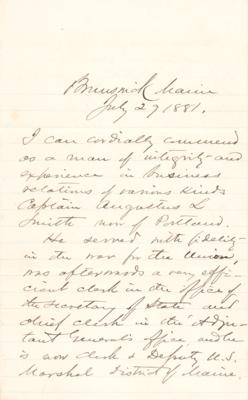 Brunswick Maine
July 27 1881.
I can cordially commend
as a man of integrity and
experience in business
relations of various kinds
Captain Augustus L
Smith now of Portland.
He served with fidelity
in the war for the Union,
was afterwards a very effi-
cient clerk in the office of
the Secretary of State, and
chief clerk in the Adju-
tant General's office, and he
is now clerk & Deputy U.S.
Marshal District of Maine.